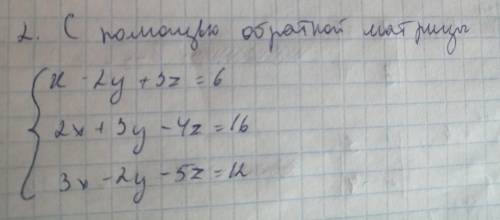 2. С помощью обратной матрицы
x - 2y + 3z = 6
2x + 3y - 4z = 16
3x - 2y - 5z = 12